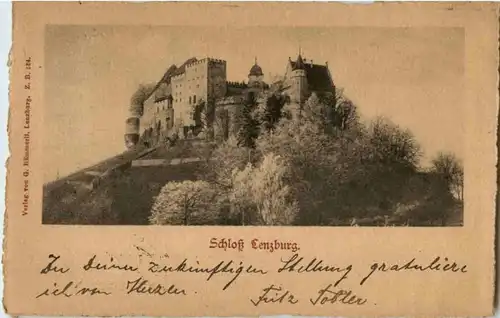 Verlag von G. Hämmerli, Lenzburg. Z. B. 124.
Schloß Lenzburg.
Zu Deiner zukünftigen Stellung gratuliere
ich von Herzen. Fritz Tobler.